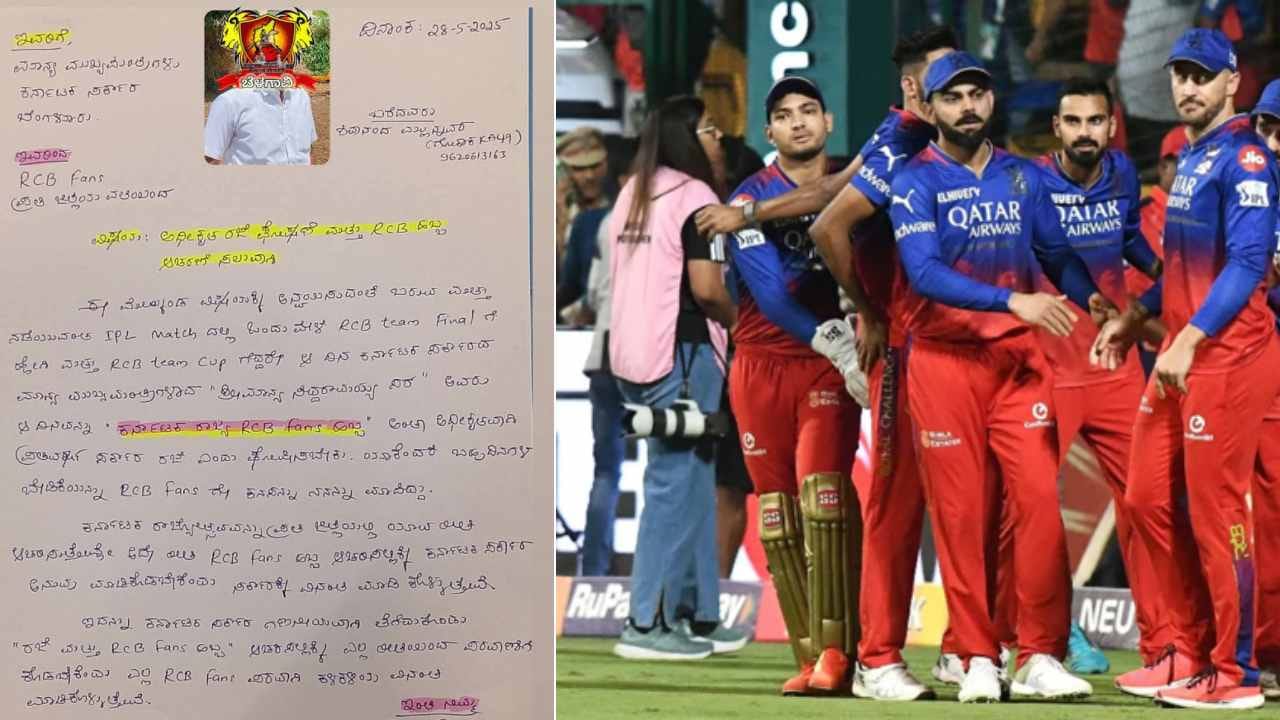 ಇವರಿಗೆ,
ಮಾನ್ಯ ಮುಖ್ಯಮಂತ್ರಿಗಳು
ಕರ್ನಾಟಕ ಸರ್ಕಾರ
ಬೆಂಗಳೂರು.
ಬೆಳಗಾವಿ
ದಿನಾಂಕ: 28-5-2025
ಬರೆದವರು
ಶಿವಾನಂದ ಮಲ್ಲಣ್ಣವರ
(ಗೋಕಾಕ KA49)
9620613163
ಇವರಿಂದ
RCB Fans
ಪ್ರತಿ ಜಿಲ್ಲೆಯ ವತಿಯಿಂದ
ವಿಷಯ: ಅಧಿಕೃತ ರಜೆ ಘೋಷಣೆ ಮತ್ತು RCB ಹಬ್ಬ
ಆಚರಣೆ ಸಲುವಾಗಿ
ಈ ಮೇಲ್ಕಂಡ ವಿಷಯಕ್ಕೆ ಅನ್ವಯಿಸುವಂತೆ
ನಡೆಯುವಂತ IPL Match ದಲ್ಲಿ ಒಂದು ವೇಳೆ RCB team Final ಗೆ
ಹೋಗಿ ಮತ್ತು RCB team Cup ಗೆದ್ದರೇ ಆ ದಿನ ಕರ್ನಾಟಕ ಸರ್ಕಾರದ
ಮಾನ್ಯ ಮುಖ್ಯಮಂತ್ರಿಗಳಾದ "ಶ್ರೀ ಮಾನ್ಯ ಸಿದ್ದರಾಮಯ್ಯ ಸರ" ಅವರು
ಆ ದಿನವನ್ನು "ಕರ್ನಾಟಕ ರಾಜ್ಯ RCB fans ಹಬ್ಬ" ಅಂತಾ ಅಧೀಕೃತವಾಗಿ
ಪ್ರತಿವರ್ಷ ಸರ್ಕಾರಿ ರಜೆ ಎಂದು ಘೋಷಿಸಬೇಕು. ಯಾಕೆಂದರೆ ಬಹುದಿನಗಳ
ಬೇಡಿಕೆಯನ್ನು RCB Fans ಗಳ ಕನಸನ್ನು ನನಸು ಮಾಡಿದ್ದು.
ಕರ್ನಾಟಕ ರಾಜ್ಯೋತ್ಸವವನ್ನು ಪ್ರತಿ ಜಿಲ್ಲೆಯಲ್ಲಿ ಯಾವ ರೀತಿ
ಆಚರಿಸುತ್ತೇವೋ ಇದೇ ರೀತಿ RCB fans ಹಬ್ಬ ಆಚರಣೆಗೆ ಕರ್ನಾಟಕ ಸರ್ಕಾರ
ಅನುವು ಮಾಡಿಕೊಡಬೇಕೆಂದು ಸರ್ಕಾರಕ್ಕೆ ವಿನಂತಿ ಮಾಡಿ ಕೊಳ್ಳುತ್ತೇವೆ.
ಇದನ್ನು ಕರ್ನಾಟಕ ಸರ್ಕಾರ ಗಣನೀಯವಾಗಿ ತೆಗೆದುಕೊಂಡು
"ರಜೆ ಮತ್ತು RCB Fans ಹಬ್ಬ" ಆಚರಣೆಗೆ ಎಲ್ಲ ರೀತಿಯಿಂದ ಪರವಾಣಿಗೆ
ಕೊಡಬೇಕೆಂದು ಎಲ್ಲ RCB Fans ಪರವಾಗಿ ಕಳಕಳಿಯ ವಿನಂತಿ
ಮಾಡಿಕೊಳ್ಳುತ್ತೇವೆ.
ಇಂತಿ ನಿಮ್ಮ
QATAR
AIRWAYS
QATAR
AIRWAYS
Jio
IPL
RuPay
NEU